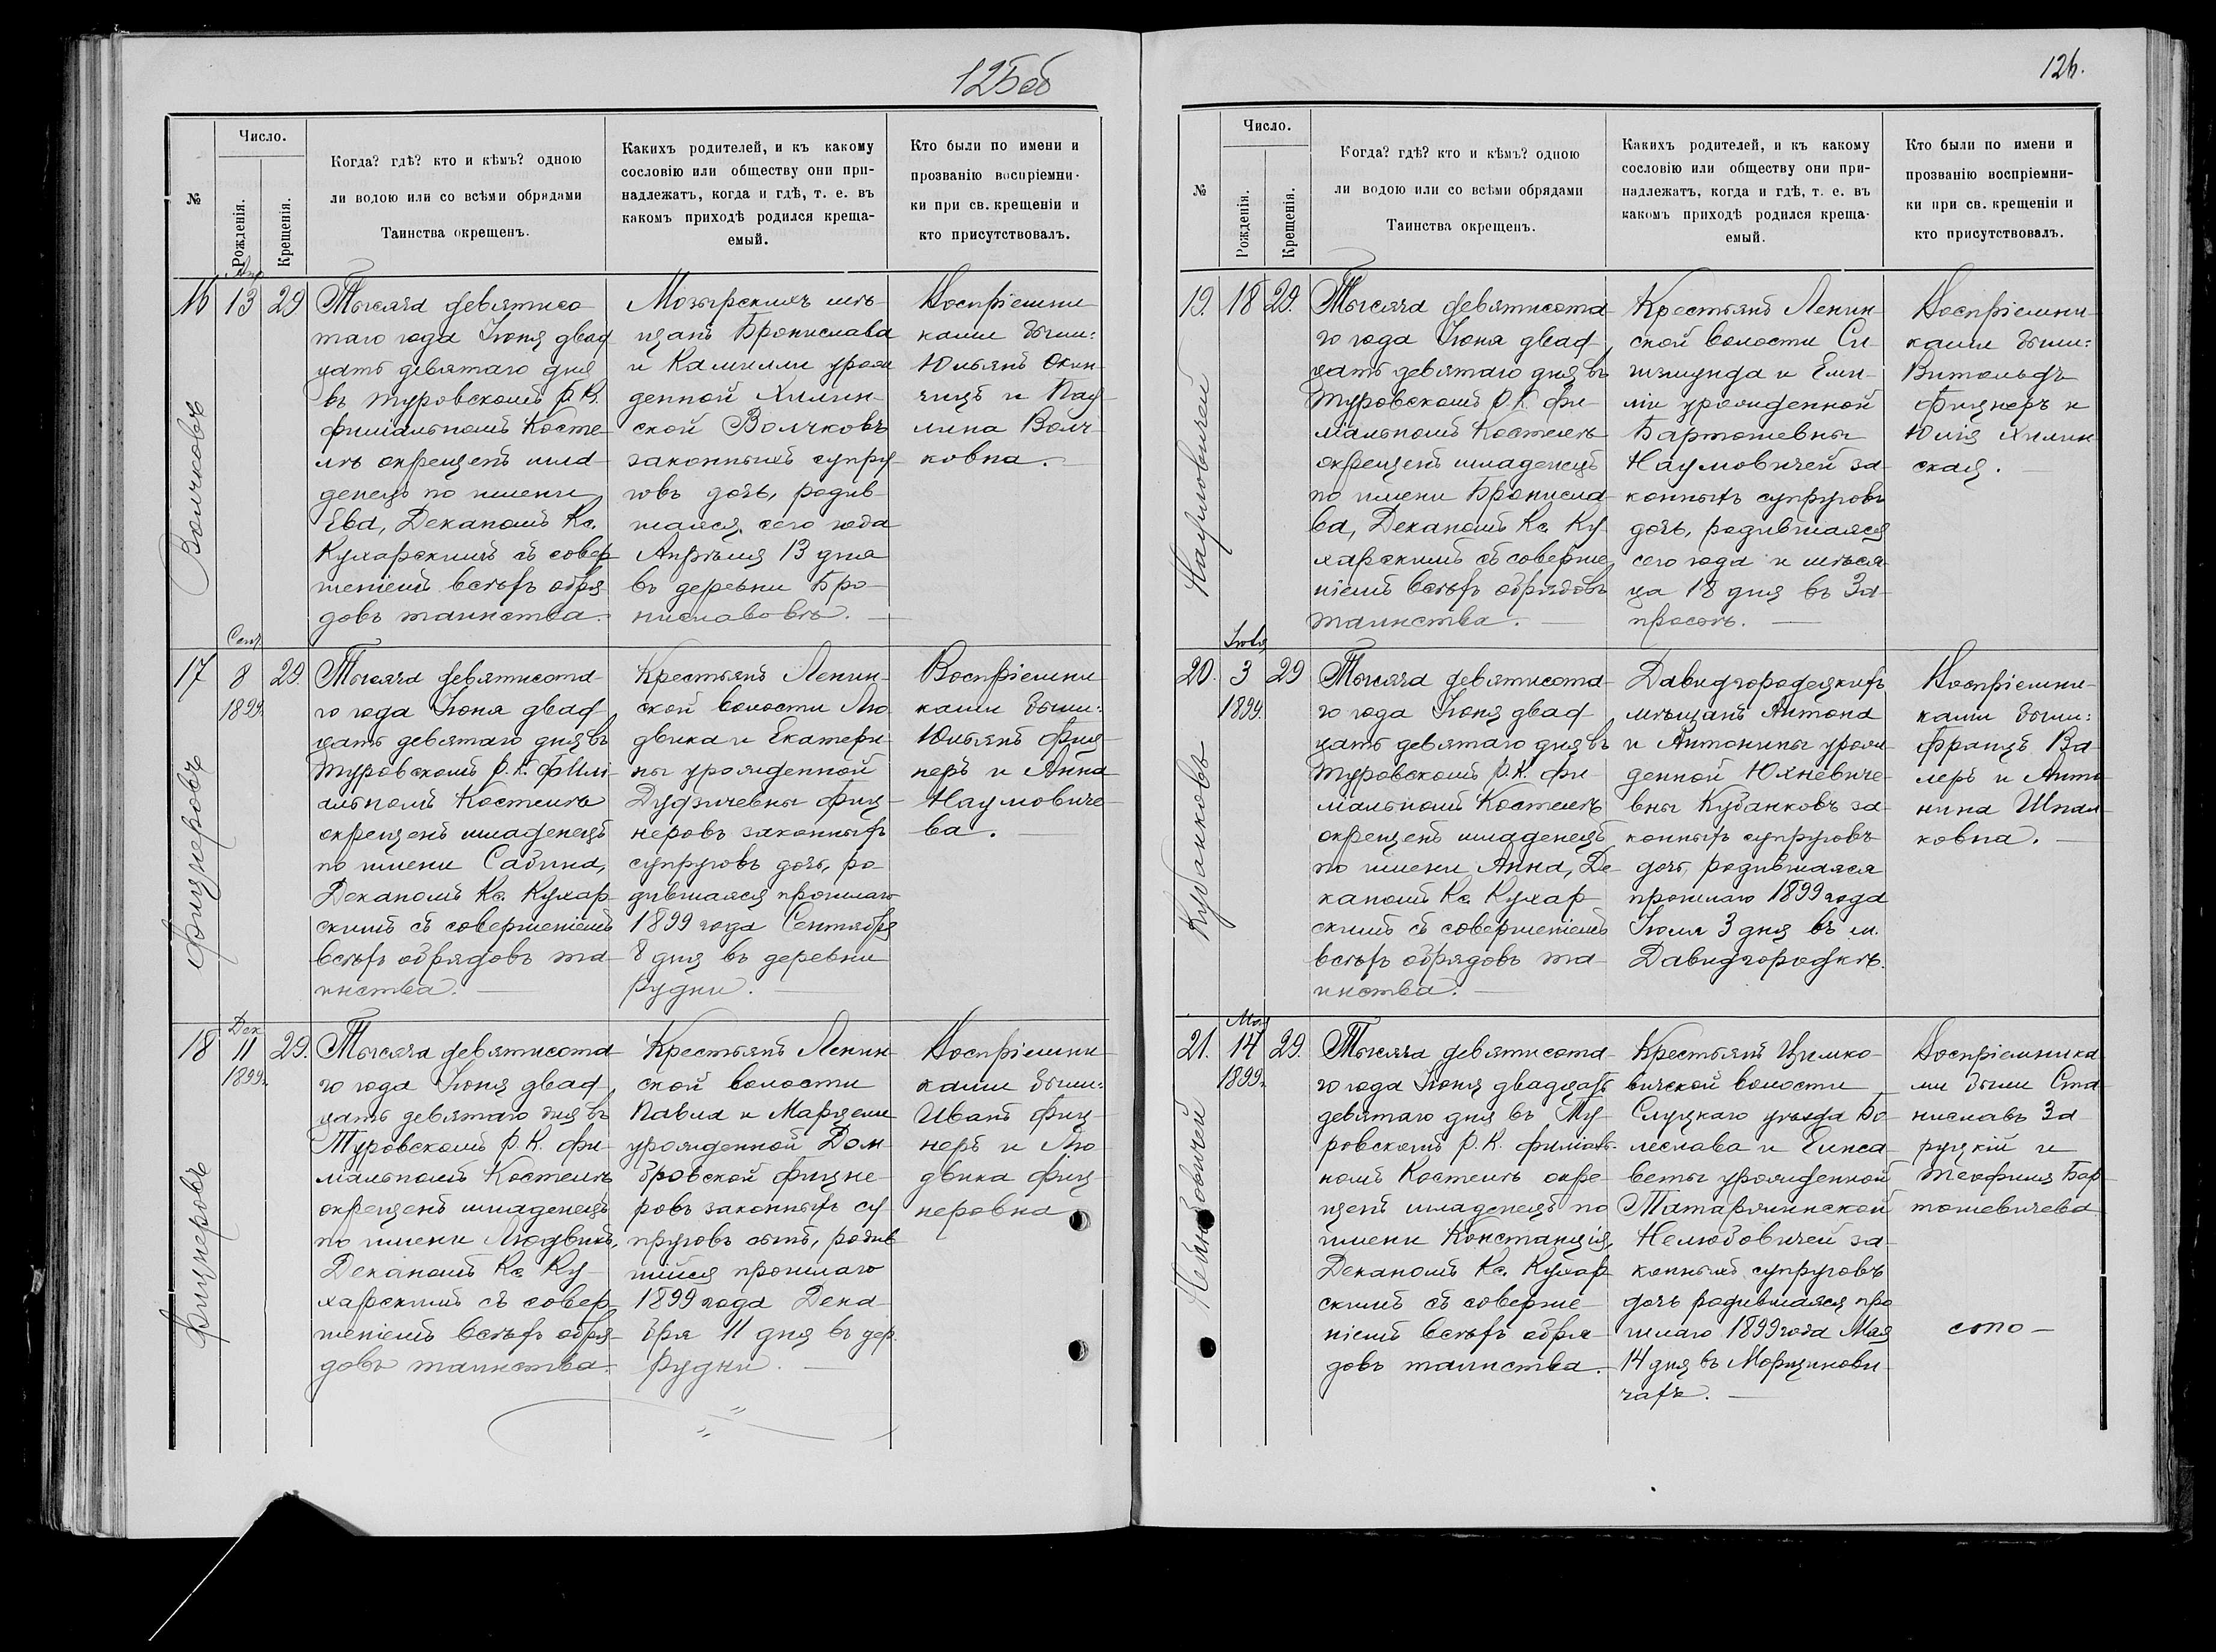 125об
Число.
№
Рожденія.
Крещенія.
Когда? гдѣ? кто и кѣмъ? одною
ли водою или со всѣми обрядами
Таинства окрещенъ.
Какихъ родителей, и къ какому
сословію или обществу они при-
надлежатъ, когда и гдѣ, т. е. въ
какомъ приходѣ родился креща-
емый.
Кто были по имени и
прозванію воспріемни-
ки при св. крещеніи и
кто присутствовалъ.
16
Волчковъ
Апр
13
29
Тысяча девятисо
таго года Іюня двад
цать девятаго дня
въ Туровскомъ Р. К.
филіальномъ Косте-
лѣ окрещенъ мла-
денецъ по имени
Ева, Деканомъ Кс.
Кухарскимъ съ совер
шеніемъ всѣхъ обря
довъ таинства.
Мозырскихъ мѣ-
щанъ Бронислава
и Камилли урож
денной Хилин-
ской Волчковъ
законныхъ супру-
говъ дочь, родив-
шаяся сего года
Апрѣля 13 дня
въ деревни Бро-
ниславовѣ.
Воспріемни
ками были:
Юльянъ Окин-
чицъ и Пау-
лина Волч-
ковна.
17
Фицнеровъ
Сент
8
1899.
29.
Тысяча девятисота-
го года Іюня двад
цать девятаго дня въ
Туровскомъ Р. К. фили-
альномъ Костелѣ
окрещенъ младенецъ
по имени Сабина,
Деканомъ Кс. Кухар-
скимъ съ совершеніемъ
всѣхъ обрядовъ та-
инства.
Крестьянъ Ленин-
ской волости Лю-
двика и Екатери-
ны урожденной
Дудзичевны Фиц-
неровъ законныхъ
супруговъ дочь, ро-
дившаяся прошлаго
1899 года Сентября
8 дня въ деревни
Рудни.
Воспріемни
ками были:
Юльянъ Фиц-
неръ и Анна
Наумовиче-
ва.
18
Фицнеровъ
Дек
11
1899.
29.
Тысяча девятисота-
го года Іюня двад,
цать девятаго дня въ
Туровскомъ Р. К. фи-
ліальномъ Костелѣ
окрещенъ младенецъ
по имени Людвикъ,
Деканомъ Кс. Ку-
харскимъ съ совер-
шеніемъ всѣхъ обря-
довъ таинства.
Крестьянъ Ленин-
ской волости
Павла и Марцели
урожденной Дом-
бровской Фицне-
ровъ законныхъ су-
пруговъ сынъ, родив
шійся прошлаго
1899 года Дека-
бря 11 дня въ дер.
Рудни.
Воспріемни
ками были:
Иванъ Фиц-
неръ и Лю-
двика Фиц-
неровна
126.
Число.
№
Рожденія.
Крещенія.
Когда? гдѣ? кто и кѣмъ? одною
ли водою или со всѣми обрядами
Таинства окрещенъ.
Какихъ родителей, и къ какому
сословію или обществу они при-
надлежатъ, когда и гдѣ, т. е. въ
какомъ приходѣ родился креща-
емый.
Кто были по имени и
прозванію воспріемни-
ки при св. крещеніи и
кто присутствовалъ.
19.
Наумовичей
18
29.
Тысяча девятисота-
го года Іюня двад,
цать девятаго дня въ
Туровскомъ Р. К. фи-
ліальномъ Костелѣ
окрещенъ младенецъ
по имени Брониcла-
ва, Деканомъ Кс. Ку
харскимъ съ соверше
ніемъ всѣхъ обрядовъ
таинства.
Крестьянъ Ленин-
ской волости Си-
гизмунда и Еми-
ліи урожденной
Бартошевны
Наумовичей за-
конныхъ супруговъ
дочь, родившаяся
сего года и мѣся-
ца 18 дня въ За-
просѣ.
Воспріемни-
ками были:
Витольдъ
Фицнеръ и
Юлія Хилин
ская.
20.
Кубанковъ
Іюля
3
1899.
29
Тысяча девятисота-
го года Іюня двад
цать девятаго дня въ
Туровскомъ Р. К. фи-
ліальномъ Костелѣ
окрещенъ младенецъ
по имени Анна, Де-
каномъ Кс. Кухар-
скимъ съ совершеніемъ
всѣхъ обрядовъ та-
инства.
Давидгородецкихъ
мѣщанъ Антона
и Антонины урож
денной Юхневиче-
вны Кубанковъ за-
конныхъ супруговъ
дочь, родившаяся
прошлаго 1899 года
Іюля 3 дня въ м.
Давидгородкѣ.
Воспріемни-
ками были:
Францъ Ва-
леръ и Анто
нина Шпал-
ковна.
21.
Нелюбовичей
Мая
14
1899.
29.
Тысяча девятисота-
го года Іюня двадцать
девятаго дня въ Ту-
ровскомъ Р. К. филіаль-
номъ Костелѣ окре-
щенъ младенецъ по
имени Констанція,
Деканомъ Кс. Кухар
скимъ съ соверше-
ніемъ всѣхъ обря-
довъ таинства.
Крестьянъ Цимко-
вичской волости
Слуцкаго уѣзда Бо-
леслава и Елиса-
веты урожденной
Татаржинской
Нелюбовичей за-
конныхъ супруговъ
дочь родившаяся про
шлаго 1899 года Мая
14 дня въ Морщинови
чахъ.
Воспріемника-
ми были Ста-
ниславъ За-
руцкій и
Теофиля Бар
тошевичева
сто —